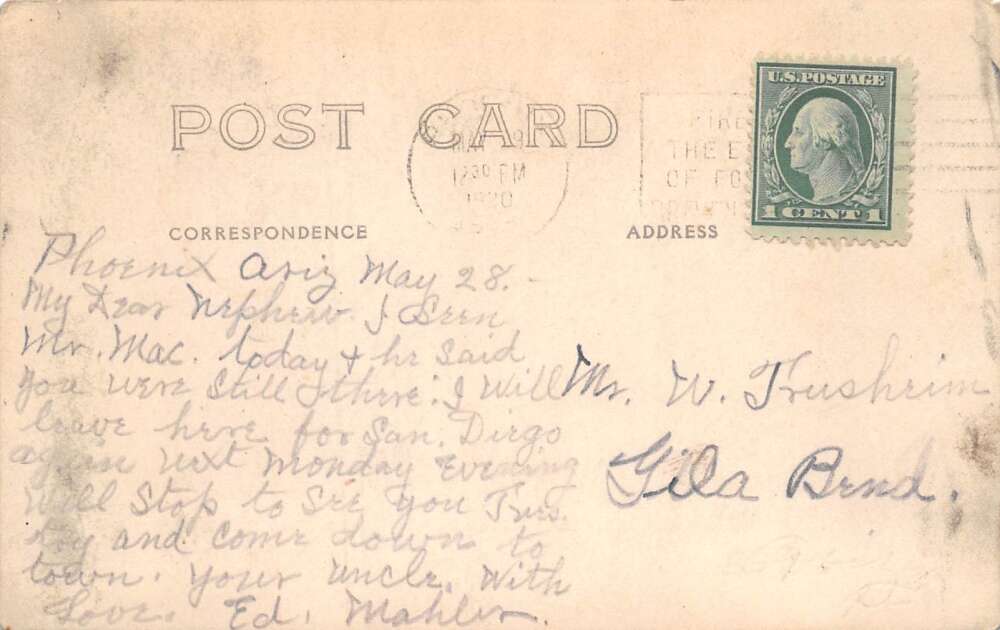 U.S. POSTAGE
1 CENT 1
POST CARD
MAY
12 30 PM
1920
FIRE
THE E
OF FO
CORRESPONDENCE
ADDRESS
Phoenix Ariz May 28.
My Dear Nephew. I Seen
Mr. Mac. today + he said
you were still there. I will
leave here for San. Diego
again next Monday Evening
will stop to see you Tues
day and come down to
town. your uncle. With
Love. Ed. Mahler
Mr. W. Trusheim
Gila Bend.